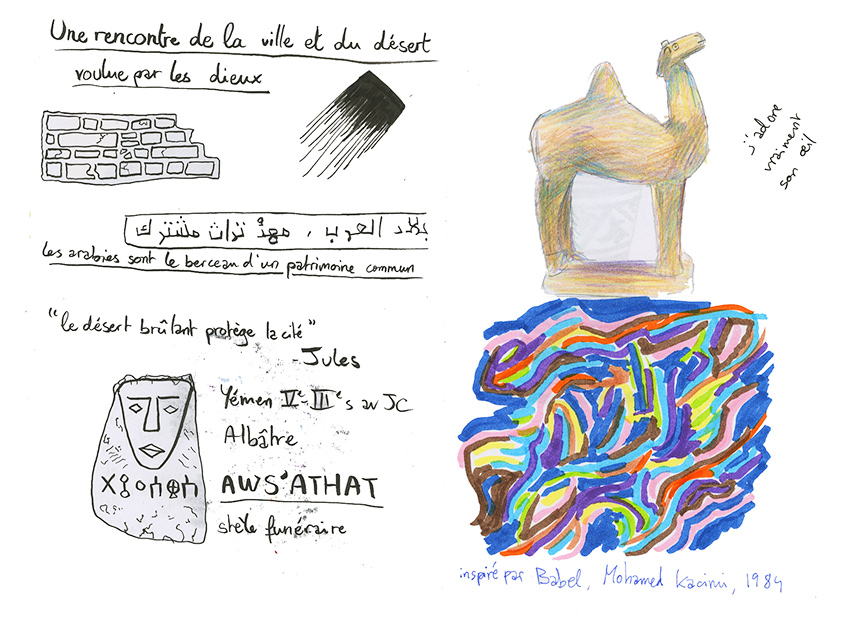 Une rencontre de la ville et du désert
voulue par les dieux
بلاد العرب ، مهدُ تراث مشترك
les arabies sont le berceau d'un patrimoine commun
"le désert brûlant protège la cité"
- Jules
Yémen Ve-IIIe s av JC
Albâtre
AWS'ATHAT
stèle funéraire
j'adore
vraiment
son œil
inspiré par Babel, Mohamed Kacimi, 1984